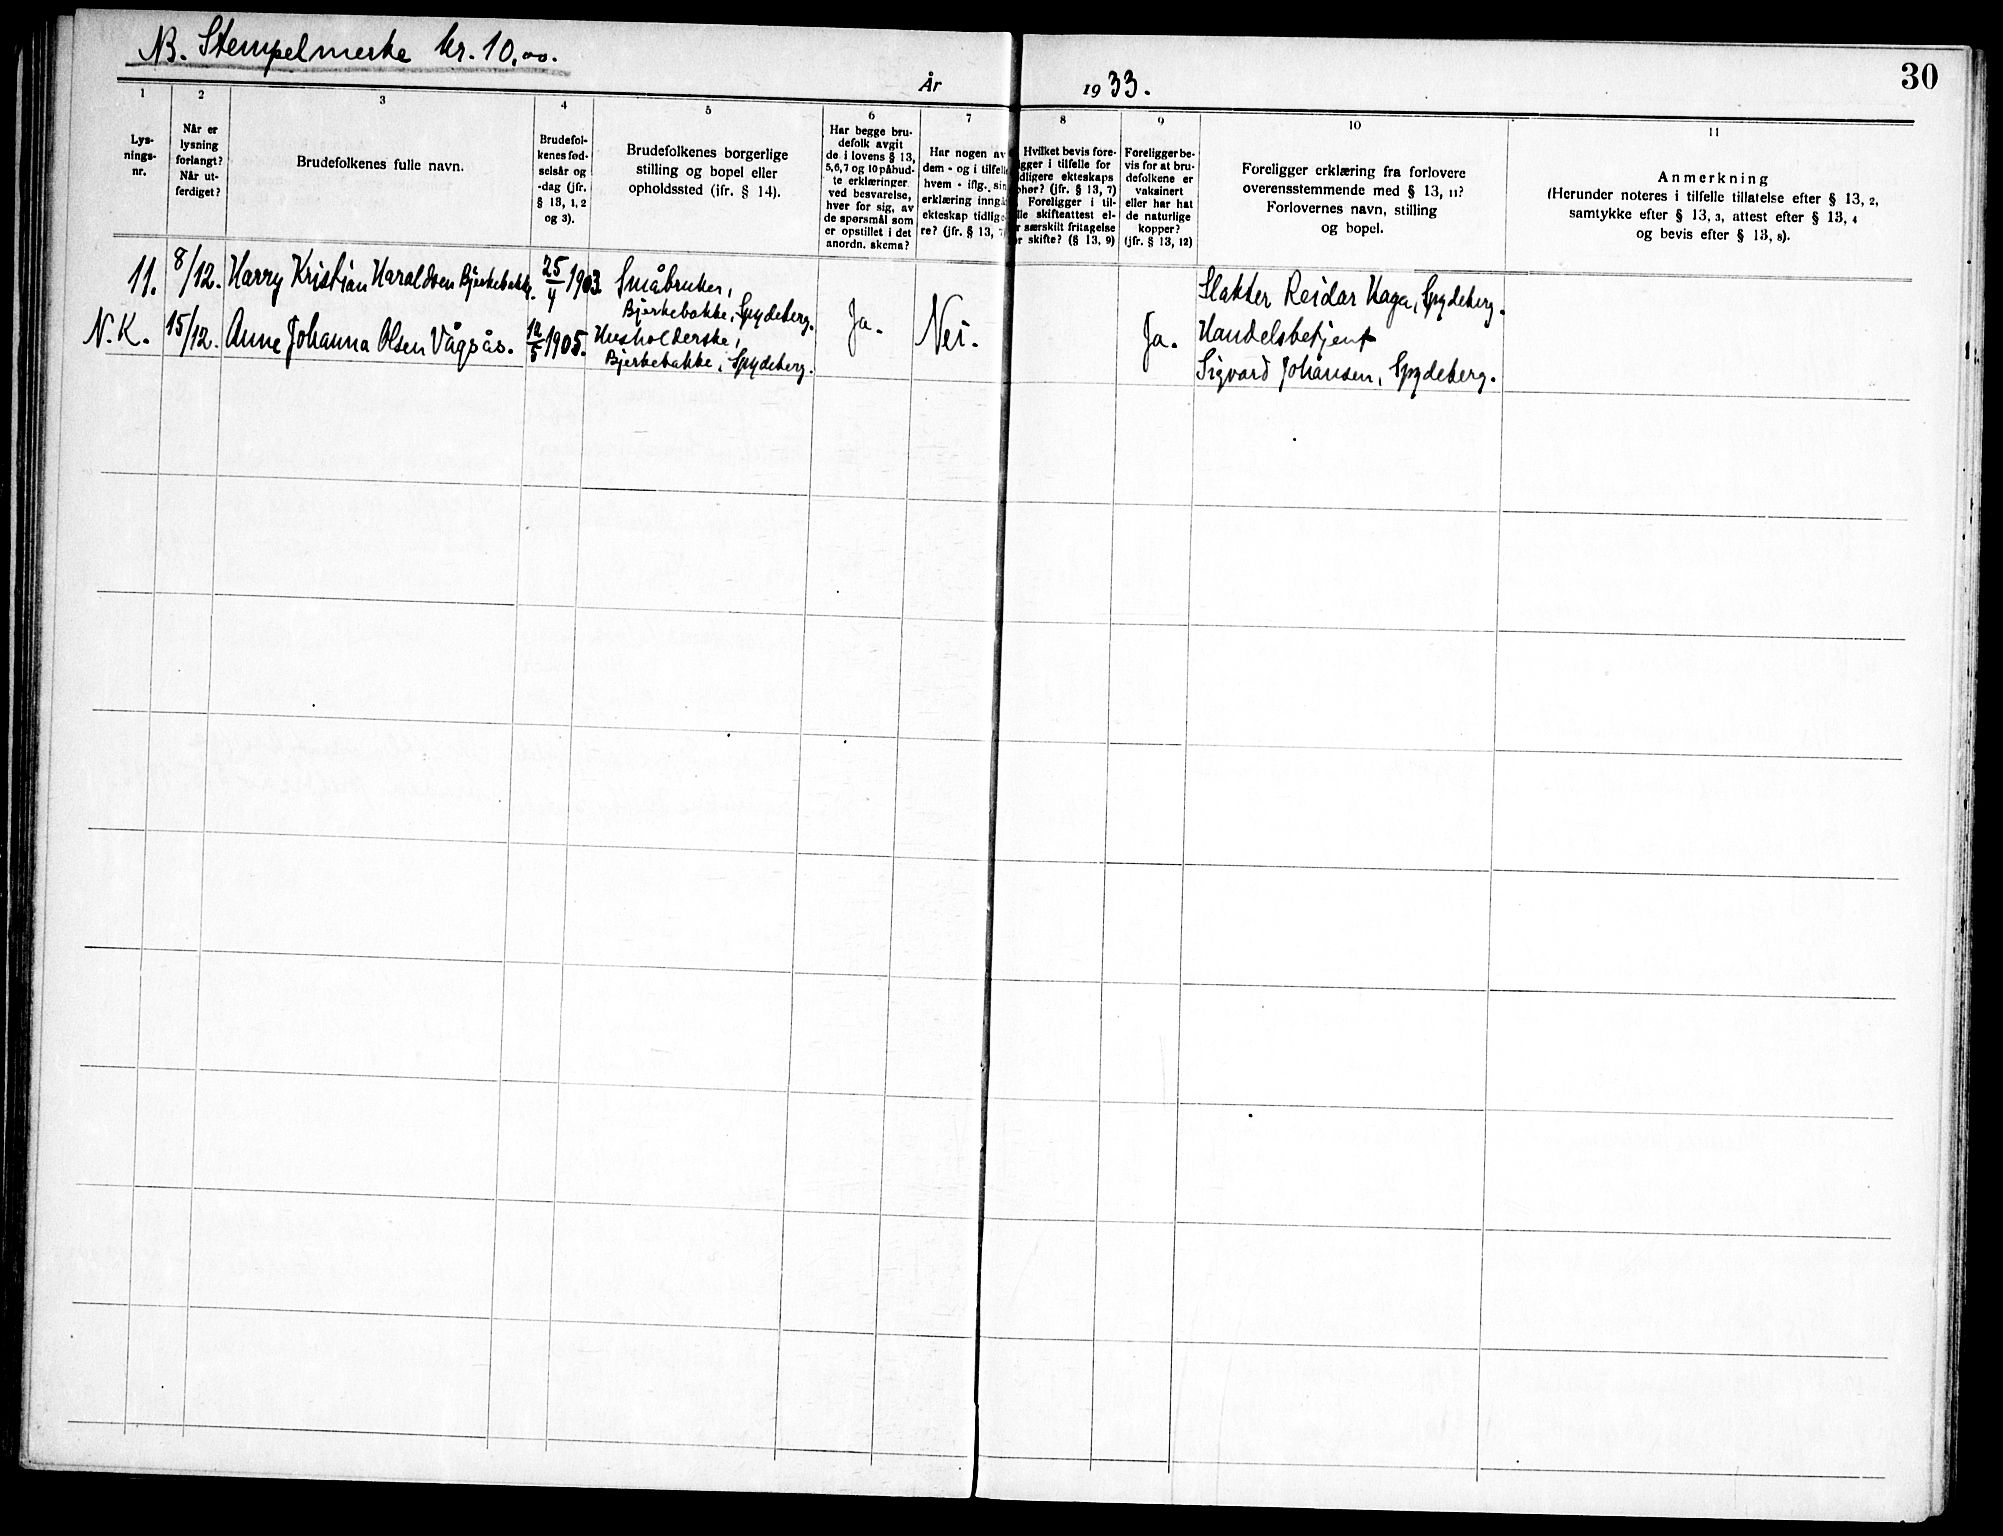 NB. Stempelmerke kr. 10,00.
År 1933.
30
1
Lys-
nings-
nr.
2
Når er
lysning
forlangt?
Når ut-
ferdiget?
3
Brudefolkenes fulle navn.
4
Brudefol-
kenes fød-
selsår og
-dag (jfr.
§ 13, 1, 2
og 3).
5
Brudefolkenes borgerlige
stilling og bopel eller
opholdssted (jfr. § 14).
6
Har begge bru-
defolk avgit
de i lovens § 13,
5,6,7 og 10 påbud-
te erklæringer
ved besvarelse,
hver for sig, av
de spørsmål som
er opstillet i det
anordn. skema?
7
Har nogen av
dem - og i tilfelle
hvem - iflg. sin
erklæring inngå
ekteskap tidlige
re? (jfr. § 13, 7
8
Hvilket bevis fore-
gger i tilfelle for
dligere ekteskaps
phør? (jfr. § 13, 7)
Foreligger i til-
lle skifteattest el-
r særskilt fritagelse
or skifte? (§ 13, 9)
9
Foreligger be-
vis for at bru-
defolkene er
vaksinert
eller har hat
de naturlige
kopper?
(jfr. § 13, 12)
10
Foreligger erklæring fra forlovere
overensstemmende med § 13, 11?
Forlovernes navn, stilling
og bopel.
11
Anmerkning
(Herunder noteres i tilfelle tillatelse efter § 13, 2,
samtykke efter § 13, 3, attest efter § 13, 4
og bevis efter § 13, 8).
11.
N.K.
8/12.
15/12.
Harry Kristian Haraldsen Bjerkebakke.
Anne Johanna Olsen Vågsås.
25/4 1903.
12/5 1905.
Småbruker,
Bjerkebakke, Spydeberg.
Husholderske,
Bjerkebakke, Spydeberg.
Ja.
Nei.
Ja.
Slakter Reidar Haga, Spydeberg.
Handelsbetjent
Sigvard Johansen, Spydeberg.